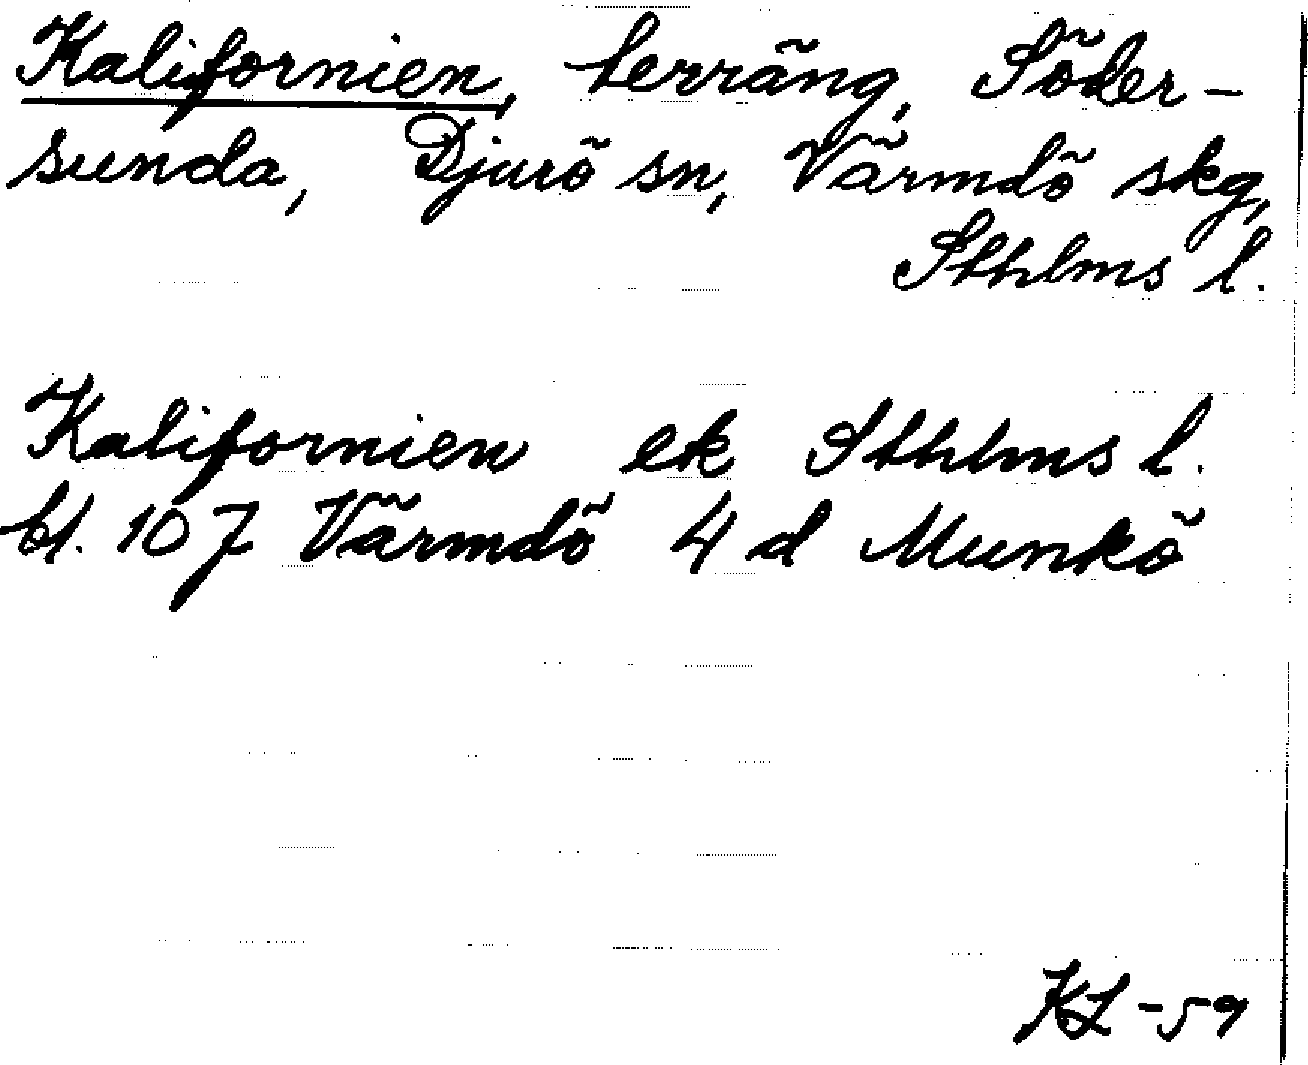 Kalifornien, terräng, Söder-
sunda, Djurö sn, Värmdö skg,
Sthlms l.
Kalifornien ek Sthlms l.
bl. 107 Värmdö 4 d Munkö
KL -59